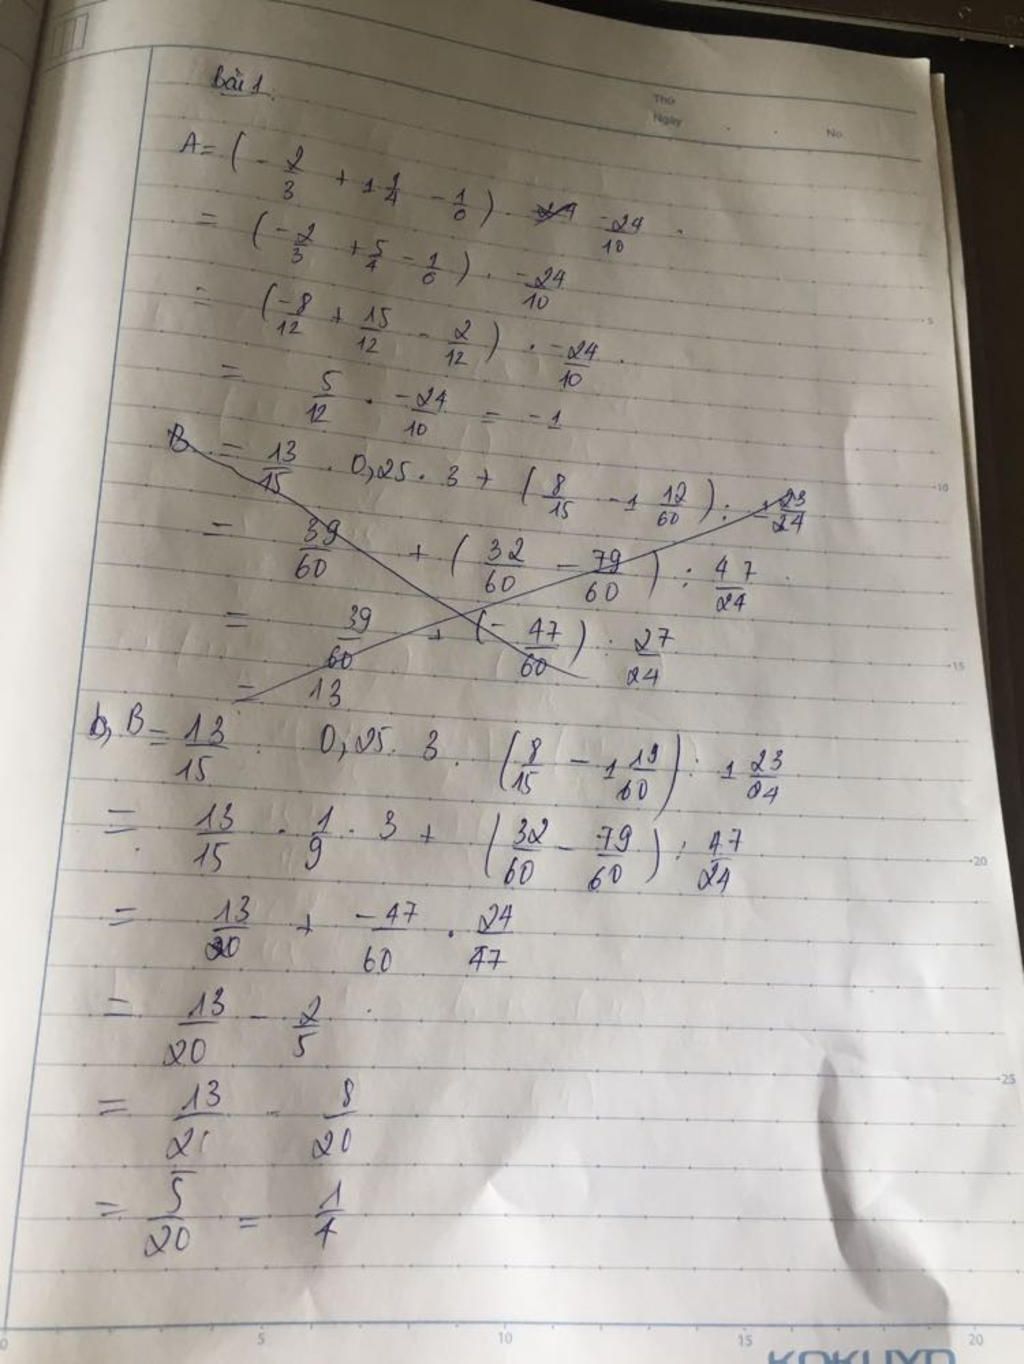 Bài 1
Thứ
Ngày
No
A = ( - 2/3 + 1 1/4 - 1/6 ) . -24/10
= ( -2/3 + 5/4 - 1/6 ) . -24/10
= ( -8/12 + 15/12 - 2/12 ) . -24/10
= 5/12 . -24/10 = -1
B = 13/15 . 0,25 . 3 + ( 8/15 - 1 12/60 ) : 1 23/24
= 39/60 + ( 32/60 - 79/60 ) : 47/24
= 39/60 + ( - 47/60 ) : 27/24
= 13
b, B = 13/15 . 0,25 . 3 . ( 8/15 - 1 19/60 ) : 1 23/24
= 13/15 . 1/9 . 3 + ( 32/60 - 79/60 ) : 47/24
= 13/20 + -47/60 . 24/47
= 13/20 - 2/5
= 13/20 - 8/20
= 5/20 = 1/4
5
10
15
20
25
0 5 10 15 20
KOKUYO